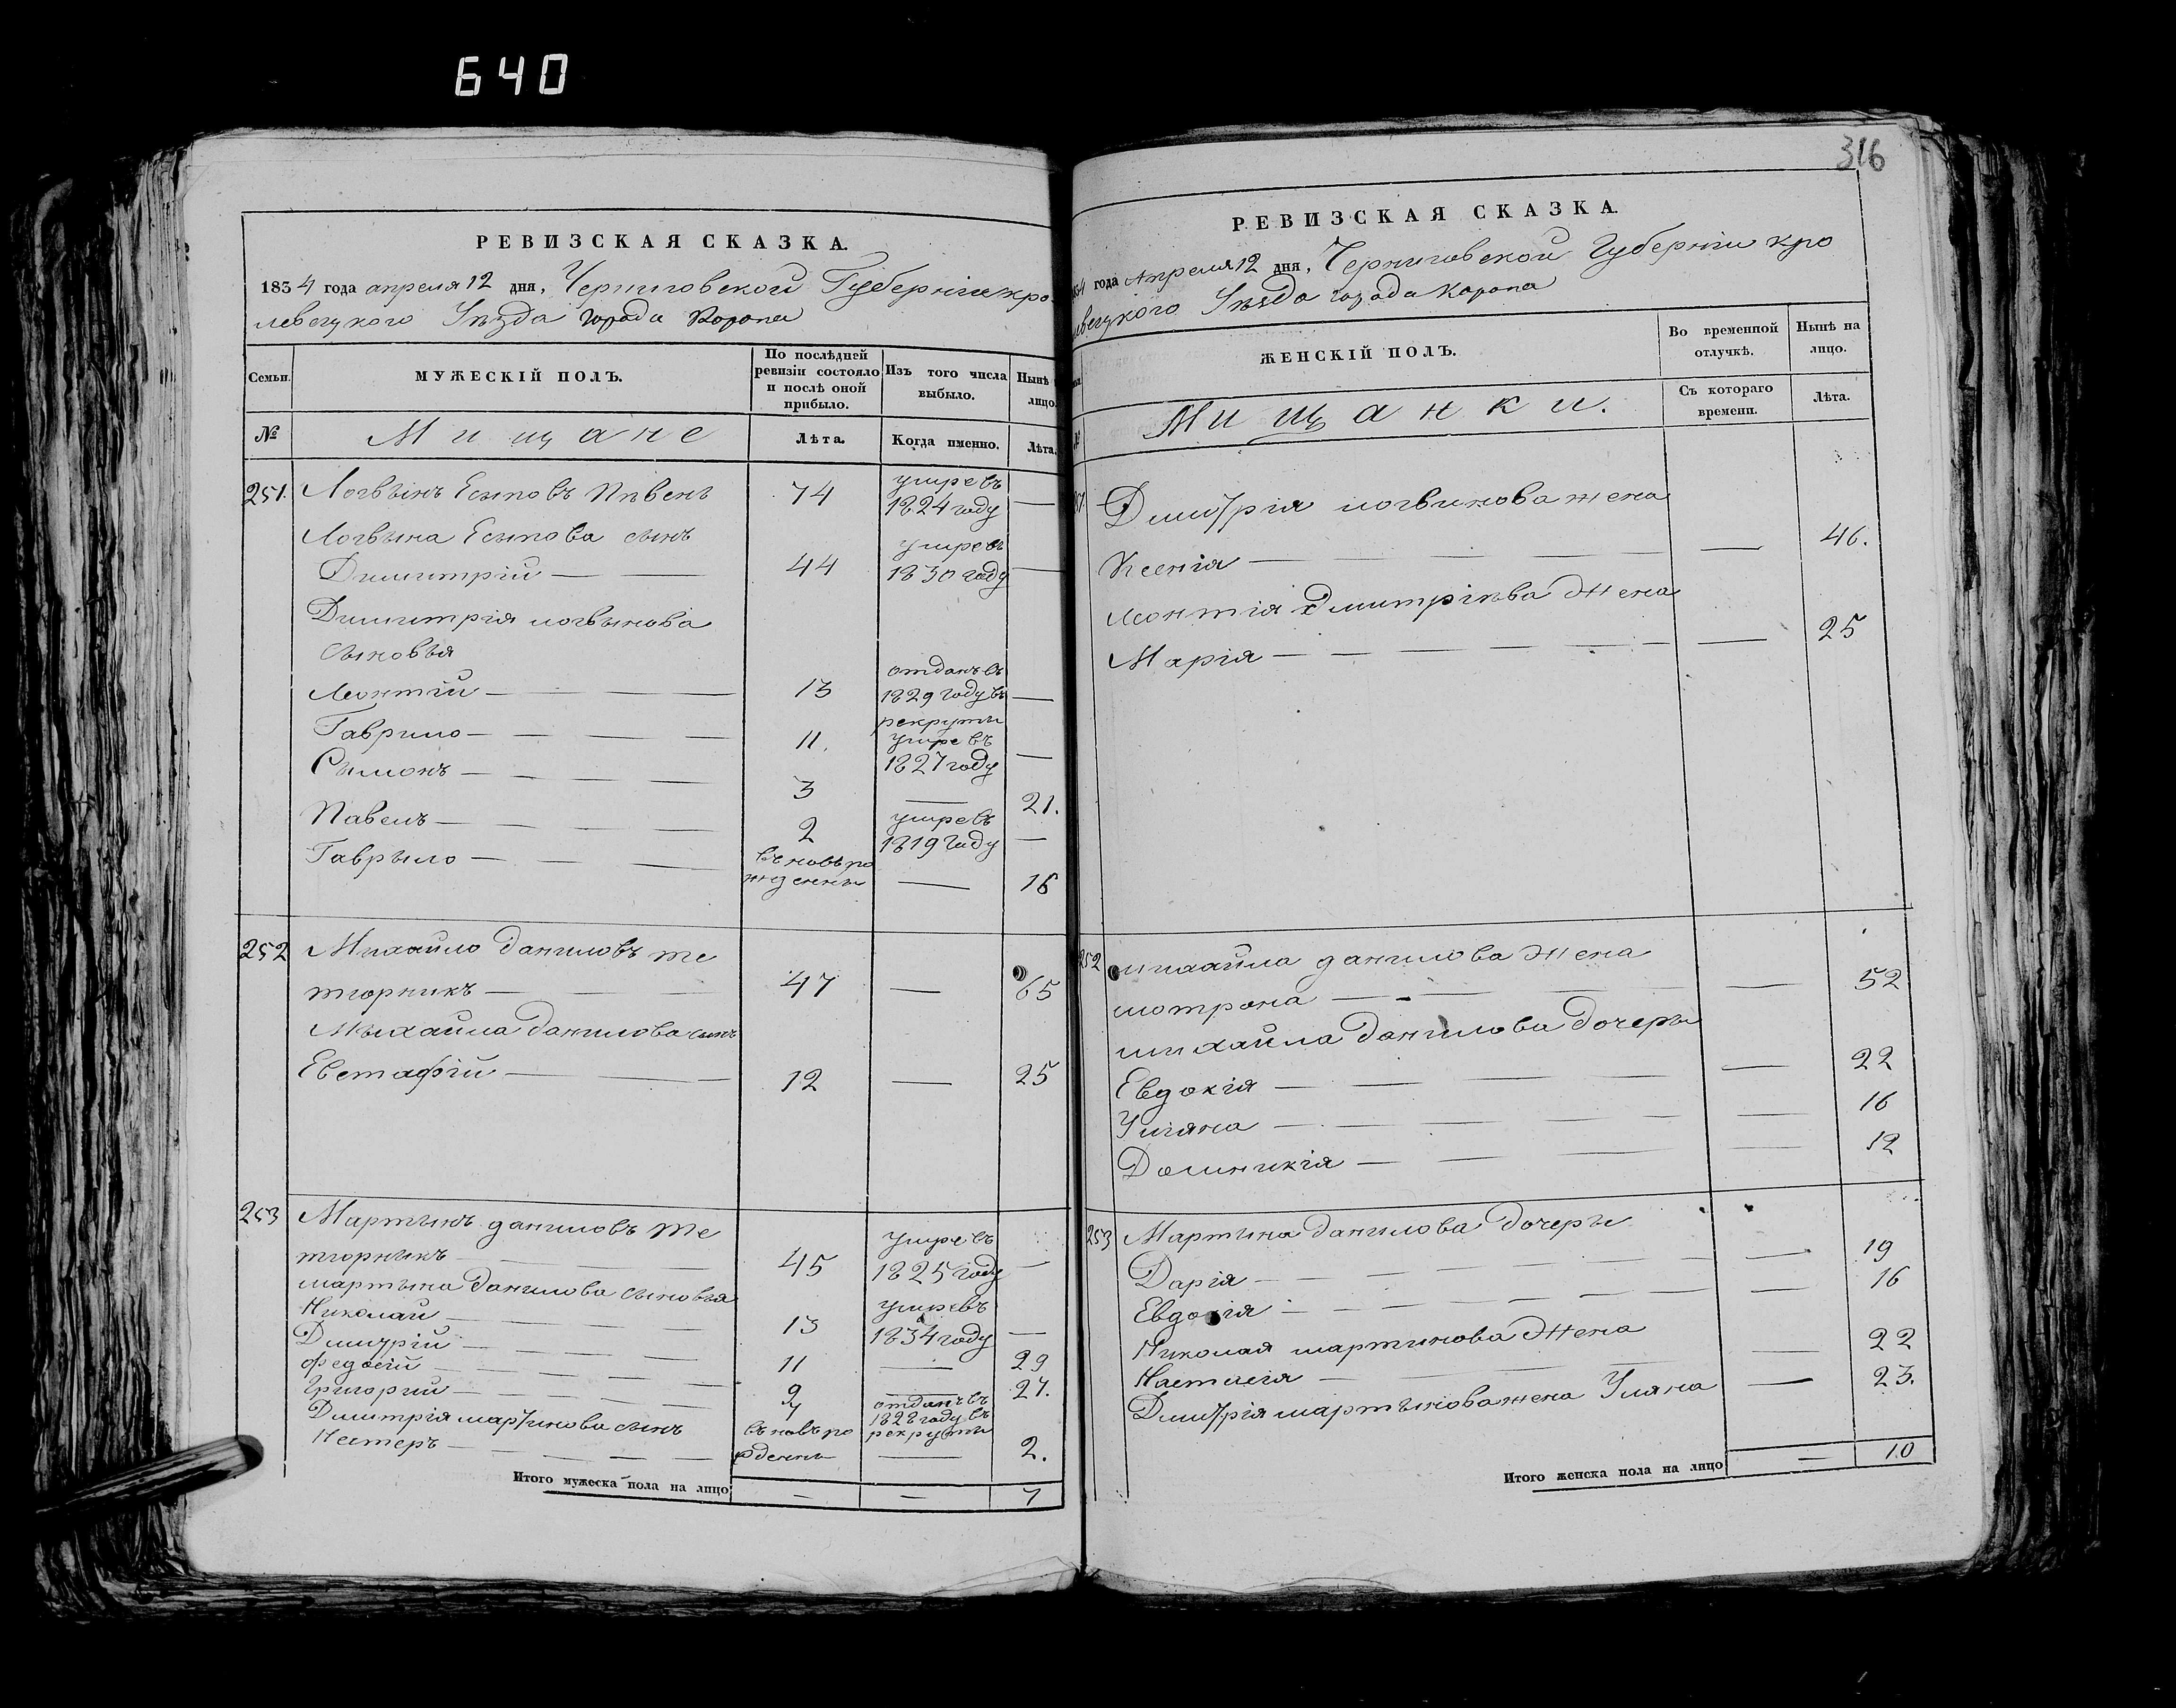 640
316
РЕВИЗСКАЯ СКАЗКА.
1834 года апреля 12 дня, Черниговской Губерніи кро
левецкого Уѣзда города Коропа
Семьи.
МУЖЕСКІЙ ПОЛЪ.
По послѣдней
ревизіи состояло
и послѣ оной
прибыло.
Изъ того числа
выбыло.
Нынѣ
лицо.
№
Мищане
Лѣта.
Когда именно.
Лѣта.
251.
Логвинъ Есыповъ Пѣвень
74
умре въ
1824 году
—
Логвына Есыпова сынъ
Димитрій — —
44
умре въ
1830 году
—
Димитрія логвынова
сыновья
Леонтій — —
13
отданъ въ
1829 году въ
рекруты
—
Гаврило — — — —
11.
умре въ
1827 году
—
Сымонъ — — — —
3
—
21.
Павелъ — — — —
2
умре въ
1819 году
—
Гаврыло — — —
въновь ро
жденны
—
16
252
Михайло Даниловъ те
торникъ — —
47
—
65
Мыхайла Данилова сынъ
Евстафій — —
12
—
25
253
Мартынъ даниловъ Те
торныкъ — —
45
умре въ
1825 году
—
мартына Данилова сыновья
Николай — — —
13
умре въ
1834 году
—
Дмитрій — — — —
11
—
29
Федосій — — — —
9
—
27.
Григорій — — — —
7
отданъ въ
1828 году въ
рекруты
Дмитрія мартинова сынъ
Нестеръ — — — —
въновь ро
жденны
—
2.
Итого мужеска пола на лицо
—
—
7
РЕВИЗСКАЯ СКАЗКА.
1834 года Апреля 12 дня, Черниговской Губерніи кро
левецкого Уѣзда города Коропа
ЖЕНСКІЙ ПОЛЪ.
Во временной
отлучкѣ.
Нынѣ на
лицо.
№
Мищанки.
Съ котораго
времени.
Лѣта.
251.
Дмитрія логвинова жена
Ксенія — — — —
—
46.
леонтія Дмитріева Жена
Марія — — — — — —
—
25
252
михайла данилова Жена
мотрона — — —
—
52
михайла Данилова Дочеры
Евдокія — — — —
—
22
Уляна — — — —
—
16
Доминикія — — — —
—
12
253
Мартина Данилова Дочеры
Дарія — — — — —
—
19
Евдокія — — — — —
—
16
Николая мартинова Жена
Настасія — —
—
22
Дмитрія мартынова жена Уляна
—
23.
Итого женска пола на лицо
—
10